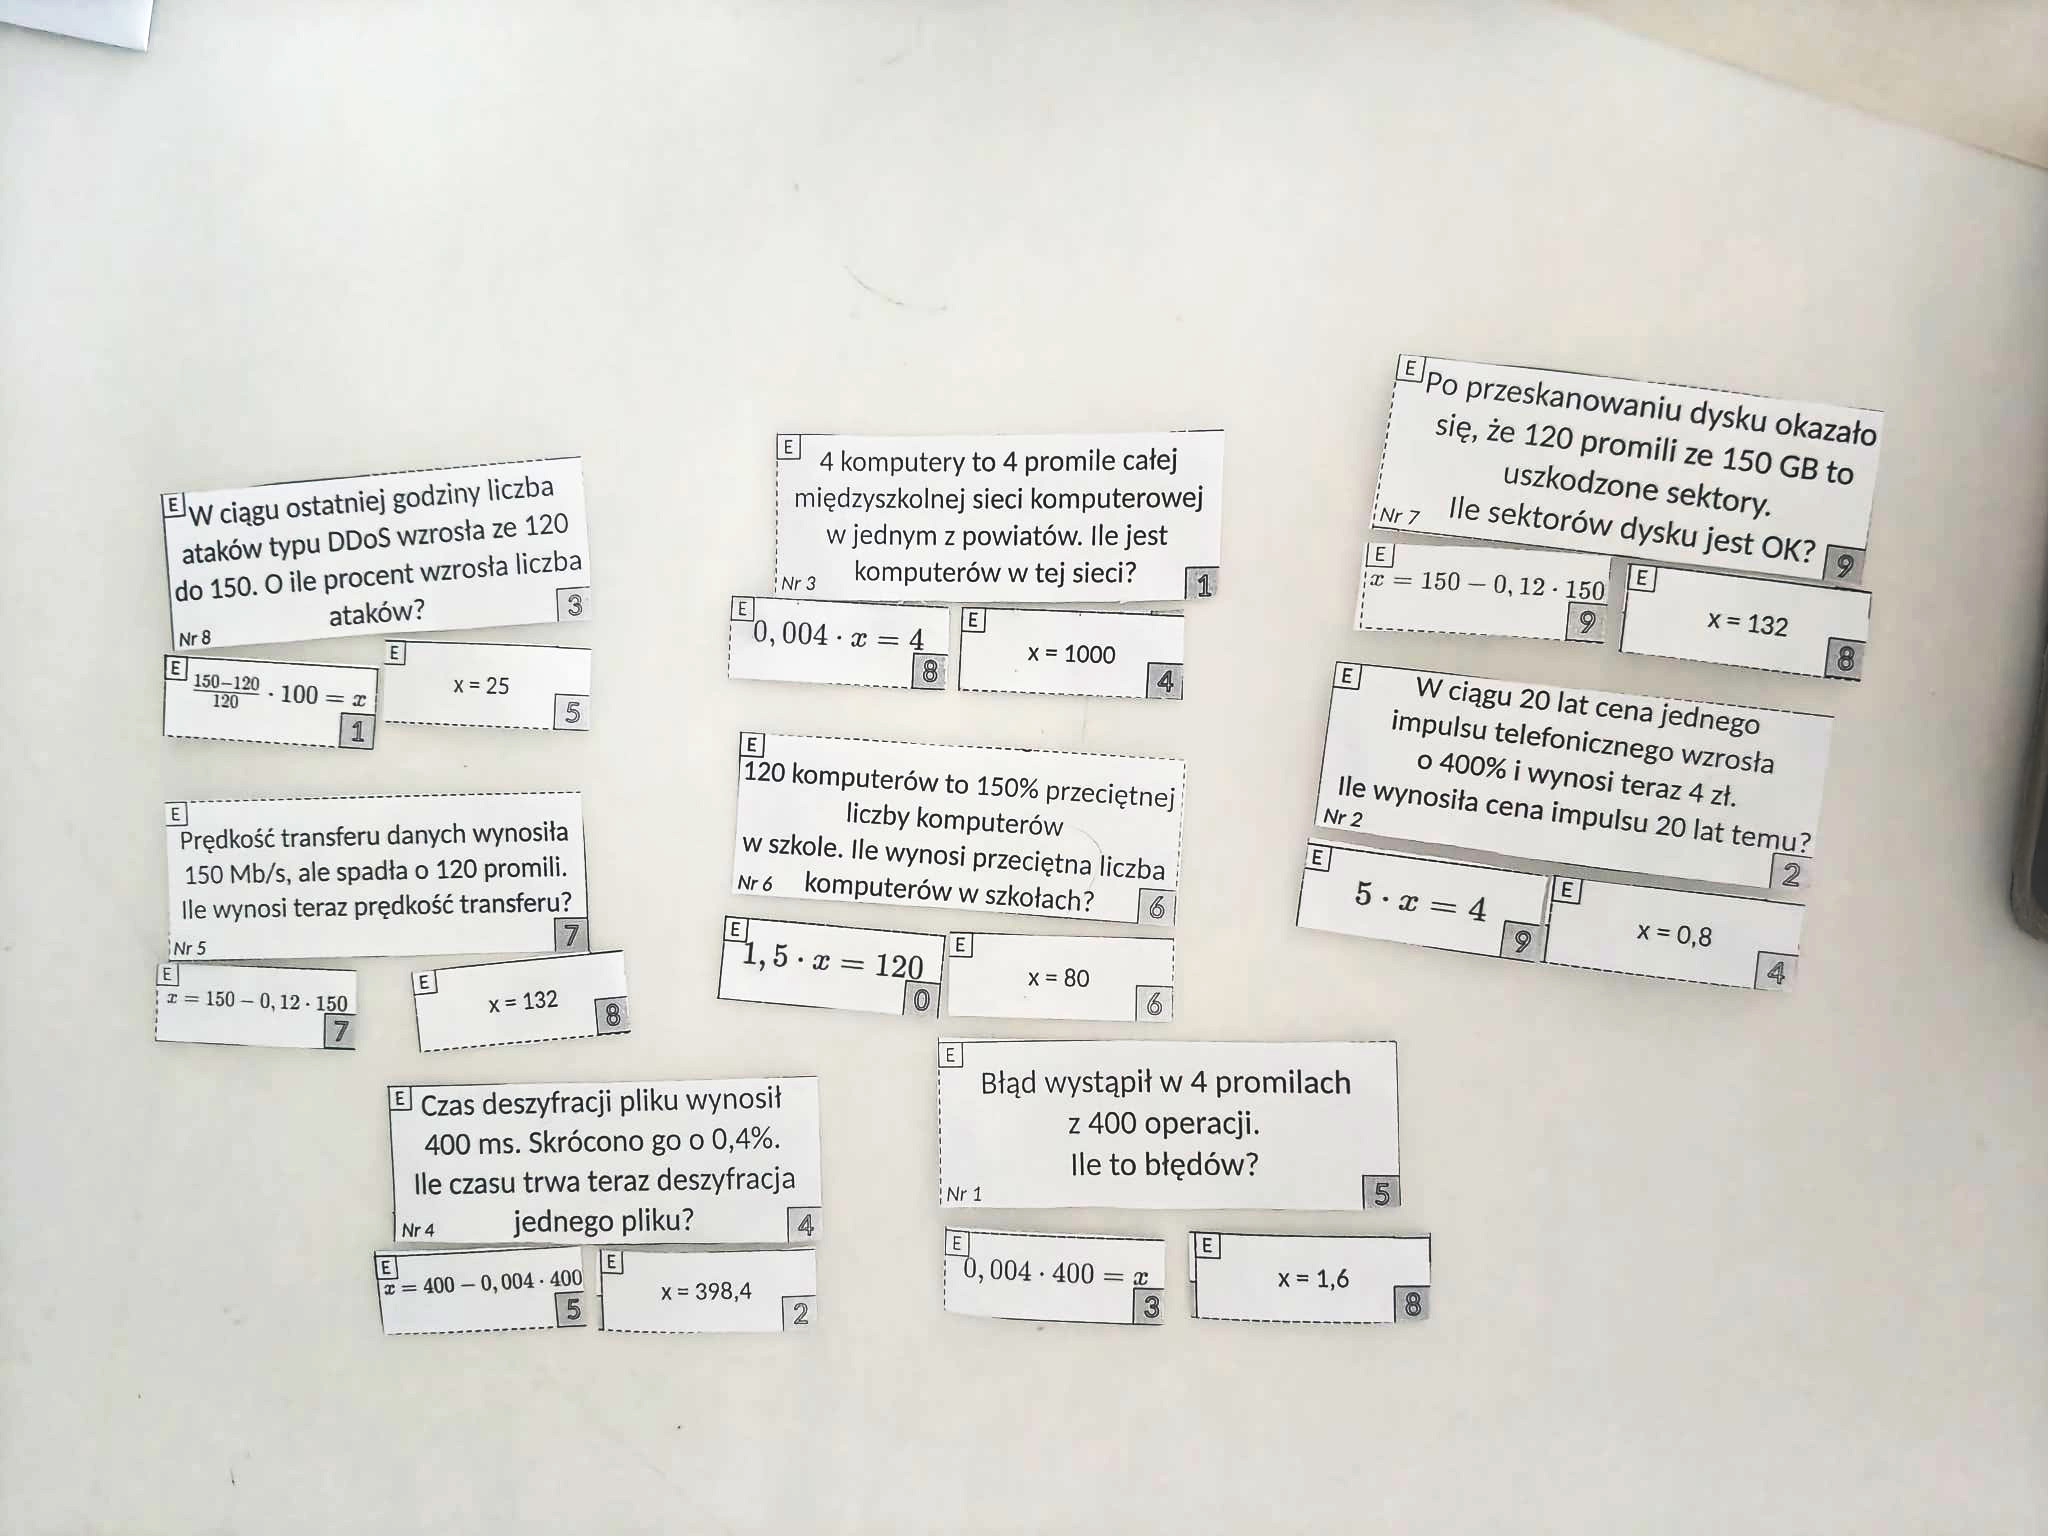 E
W ciągu ostatniej godziny liczba
ataków typu DDoS wzrosła ze 120
do 150. O ile procent wzrosła liczba
ataków?
Nr 8
3
E
150−120
120
· 100 = x
1
E
x = 25
5
E
Prędkość transferu danych wynosiła
150 Mb/s, ale spadła o 120 promili.
Ile wynosi teraz prędkość transferu?
Nr 5
7
E
x = 150 − 0, 12 · 150
7
E
x = 132
8
E
Czas deszyfracji pliku wynosił
400 ms. Skrócono go o 0,4%.
Ile czasu trwa teraz deszyfracja
jednego pliku?
Nr 4
4
E
x = 400 − 0, 004 · 400
5
E
x = 398,4
2
E
4 komputery to 4 promile całej
międzyszkolnej sieci komputerowej
w jednym z powiatów. Ile jest
komputerów w tej sieci?
Nr 3
1
E
0, 004 · x = 4
8
E
x = 1000
4
E
120 komputerów to 150% przeciętnej
liczby komputerów
w szkole. Ile wynosi przeciętna liczba
komputerów w szkołach?
Nr 6
6
E
1, 5 · x = 120
0
E
x = 80
6
E
Błąd wystąpił w 4 promilach
z 400 operacji.
Ile to błędów?
Nr 1
5
E
0, 004 · 400 = x
3
E
x = 1,6
8
E
Po przeskanowaniu dysku okazało
się, że 120 promili ze 150 GB to
uszkodzone sektory.
Ile sektorów dysku jest OK?
Nr 7
9
E
x = 150 − 0, 12 · 150
9
E
x = 132
8
E
W ciągu 20 lat cena jednego
impulsu telefonicznego wzrosła
o 400% i wynosi teraz 4 zł.
Ile wynosiła cena impulsu 20 lat temu?
Nr 2
2
E
5 · x = 4
9
E
x = 0,8
4